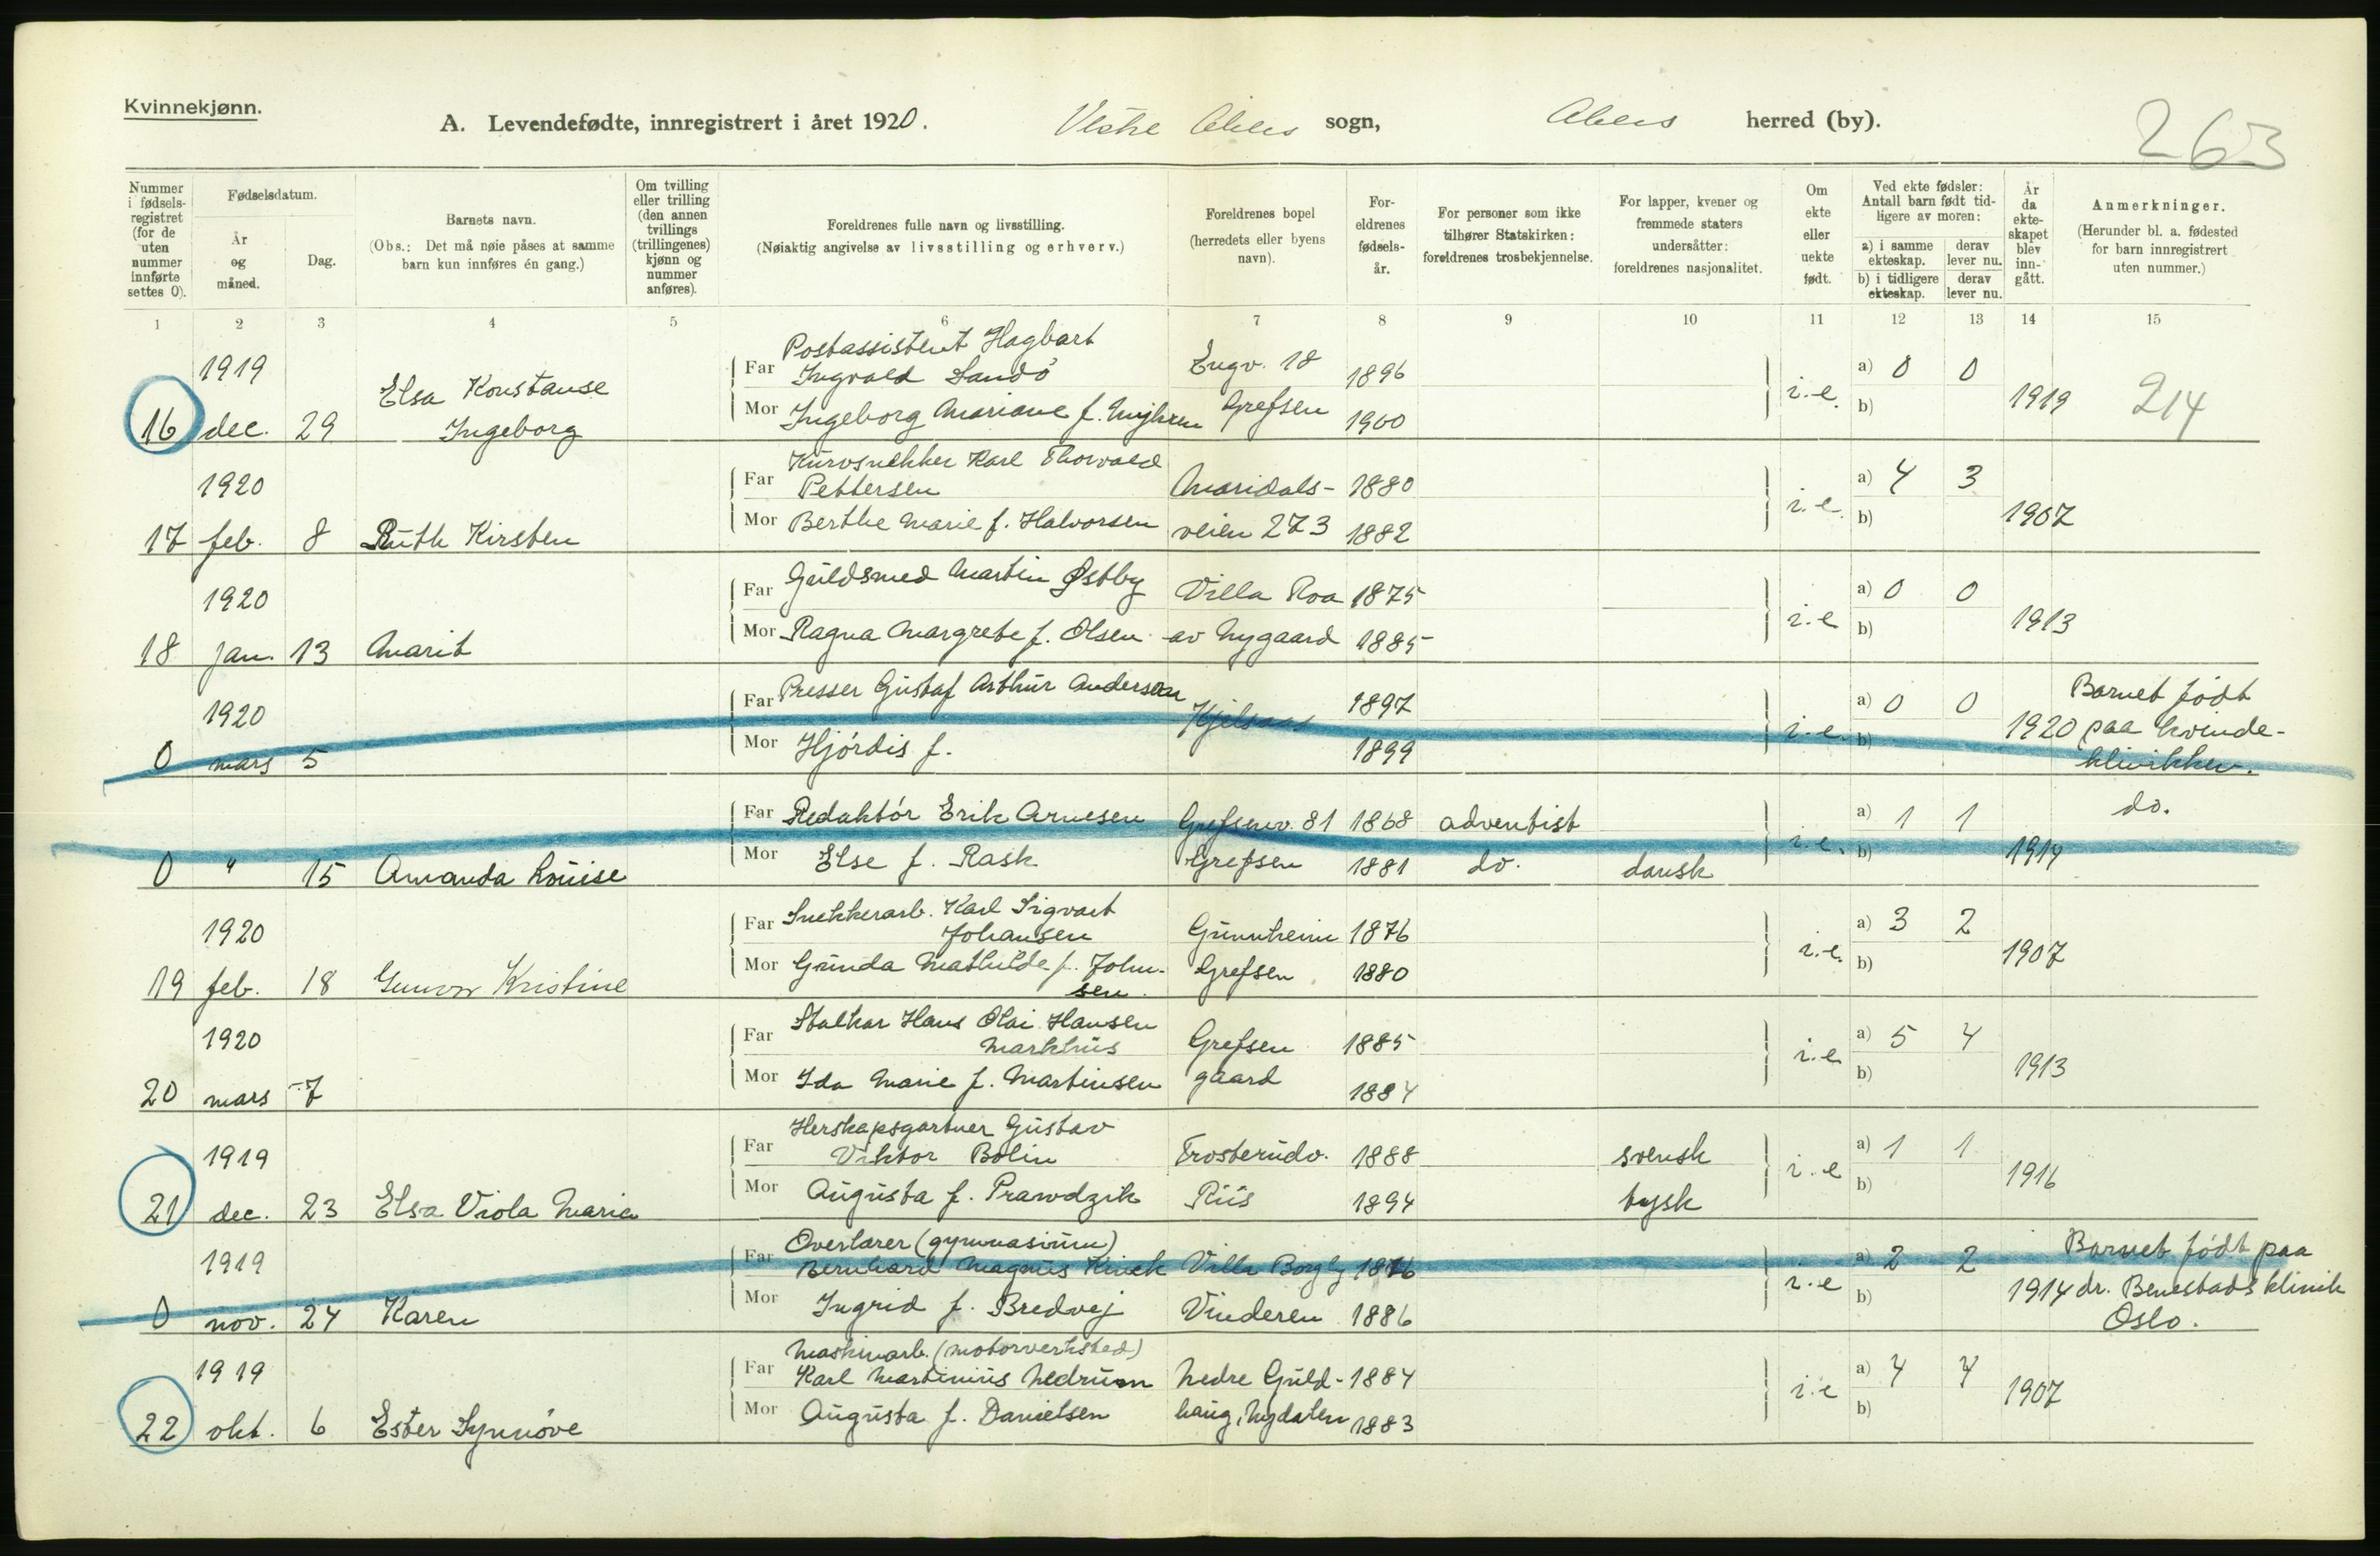 Kvinnekjønn.
A. Levendefødte, innregistrert i året 1920. Vestre Akers sogn, Akers herred (by).
263
Nummer i fødsels-registret (for de uten nummer innførte settes 0).
Fødselsdatum.
År og måned.
Dag.
Barnets navn.
(Obs.: Det må nøie påses at samme barn kun innføres én gang.)
Om tvilling eller trilling (den annen tvillings (trillingenes) kjønn og nummer anføres).
Foreldrenes fulle navn og livsstilling.
(Nøiaktig angivelse av livsstilling og erhverv.)
Foreldrenes bopel (herredets eller byens navn).
For-eldrenes fødsels-år.
For personer som ikke tilhører Statskirken: foreldrenes trosbekjennelse.
For lapper, kvener og fremmede staters undersåtter: foreldrenes nasjonalitet.
Om ekte eller uekte født.
Ved ekte fødsler: Antall barn født tid-ligere av moren:
a) i samme ekteskap. derav lever nu.
b) i tidligere ekteskap. derav lever nu.
År da ekte-skapet blev inn-gått.
Anmerkninger.
(Herunder bl. a. fødested for barn innregistrert uten nummer.)
1 2 3 4 5 6 7 8 9 10 11 12 13 14 15
1919
16 dec. 29 Elsa Konstanse Ingeborg
Far Postassistent Hagbart Ingvald Sandö Engv. 18 1896
Mor Ingeborg Mariane f. Grefsen 1900
i.e. a) 0 0 b) 1919 214
1920
17 feb. 8 Ruth Kirsten
Far Kurvsnekker Karl Thorvald Pettersen Maridals- 1880
Mor Berthe Marie f. Halvorsen veien 273 1882
i.e. a) 4 3 b) 1907
1920
18 jan. 13 Marit
Far Guldsmed Martin Østby Villa Roa 1875
Mor Ragna Margrete f. Olsen av Nygaard 1885
i.e. a) 0 0 b) 1913
1920
0 mars 5
Far Presser Gustaf Arthur Anderson Kjelsaas 1897
Mor Hjördis f. 1899
i.e. a) 0 0 b) 1920 Barnet födt paa kvinde-klinikken.
0 " 15 Amanda Louise
Far Redaktör Erik Arnesen Grefsenv. 81 1868 adventist
Mor Else f. Rask Grefsen 1881 do. dansk
i.e. a) 1 1 b) 1914 do.
1920
19 feb. 18 Gunvor Kristine
Far Snekkerarb. Karl Sigvart Johansen Gunnheim 1876
Mor Gunda Mathilde f. John-sen. Grefsen 1880
i.e. a) 3 2 b) 1907
1920
20 mars 7
Far Stalkar Hans Olai Hansen Markhus Grefsen 1885
Mor Ida Marie f. Martinsen gaard 1884
i.e. a) 5 4 b) 1913
1919
21 dec. 23 Elsa Viola Maria
Far Herskapsgartner Gustav Viktor Bolin Trosterudv. 1888 svensk
Mor Augusta f. Prawdzik Riis 1894 tysk
i.e a) 1 1 b) 1916
1919
0 nov. 24 Karen
Far Overlærer (gymnasium) Bernhard Magnus Kinck Villa Borgly 1876
Mor Ingrid f. Bredvej Vinderen 1886
i.e a) 2 2 b) 1914 Barnet födt paa dr. Benestads klinik Oslo.
1919
22 okt. 6 Ester Synnöve
Far Maskinarb. (motorverksted) Karl Martinius Nedrum Nedre Guld- 1884
Mor Augusta f. Danielsen haug, Nydalen 1883
i.e a) 4 4 b) 1907